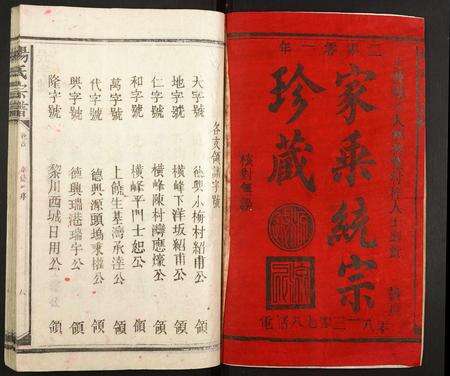 二零零一年
家乘統宗
珍藏
核對無訛
各支領譜字號
天字號 德興小梅村紹甫公 領
地字號 橫峰下洋坂紹甫公 領
仁字號 橫峰陳村濤應燦公 領
和字號 橫峰平門士起公 領
萬字號 上饒生基灣承逵公 領
代字號 德興源頭塢東權公 領
興字號 德興瑞港瑞宇公 領
隆字號 黎川西城日用公 領
楊氏宗譜
八